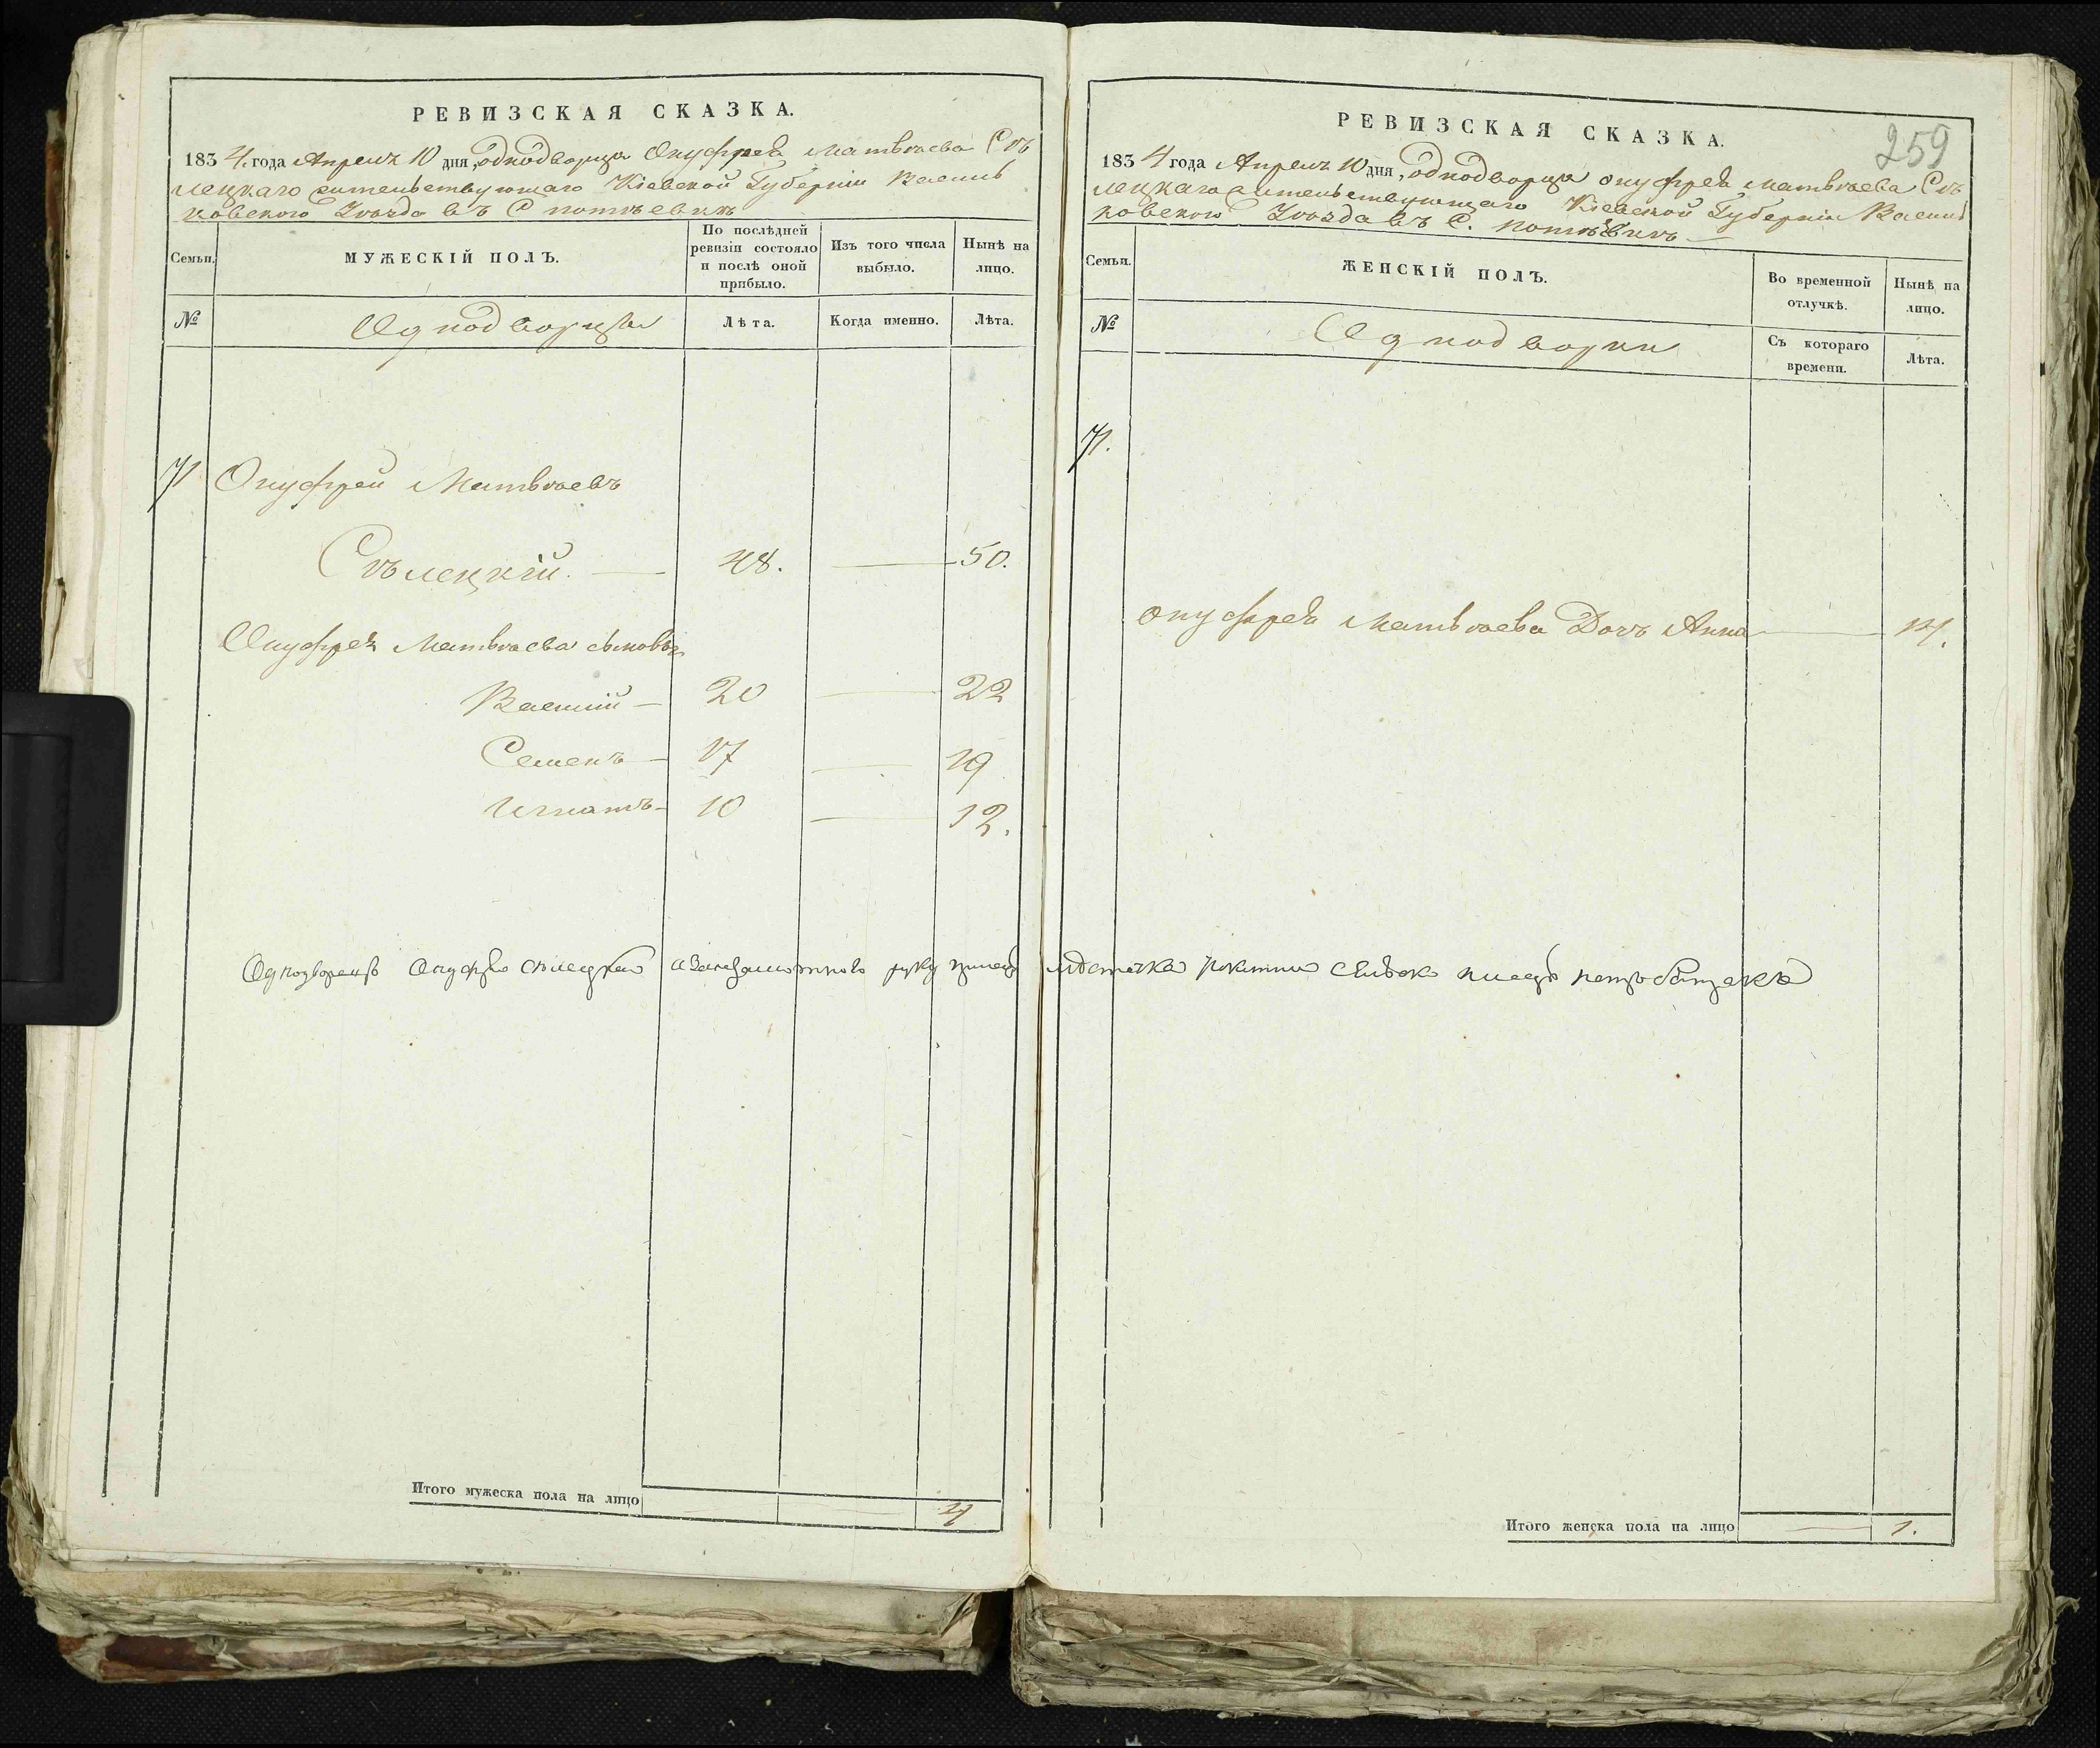 РЕВИЗСКАЯ СКАЗКА.
1834. года Апреля 10 дня, однодворца Онуфрея Матвѣева Сѣ
лецкаго жительствующаго Кіевской Губерніи Василь
ковского Уѣзда въ С
Семьи.
МУЖЕСКІЙ ПОЛЪ.
По послѣдней
ревизіи состояло
и послѣ оной
прибыло.
Изъ того числа
выбыло.
Нынѣ на
лицо.
№
Однодворцы
Лѣта.
Когда именно.
Лѣта.
71 Онуфрей Матвѣевъ
Сѣлецкій. 48. 50.
Онуфрея Матвѣева сыновья
Василій 20 22
Семенъ 17 19
Игнатъ 10 12.
Итого мужеска пола на лицо 4
РЕВИЗСКАЯ СКАЗКА.
259
1834 года Апреля 10 дня, однодворца Онуфрея Матвѣева Сѣ
лецкаго жительствующаго Кіевской Губерніи Василь
ковского Уѣзда въ С.
Семьи.
ЖЕНСКІЙ ПОЛЪ.
Во временной
отлучкѣ.
Нынѣ на
лицо.
№
Однодворки
Съ котораго
времени.
Лѣта.
71.
Онуфрея Матвѣева Дочь Анна 14.
Однодворецъ Онуфрей Сѣлецкий а руку
Итого женска пола на лицо 1.